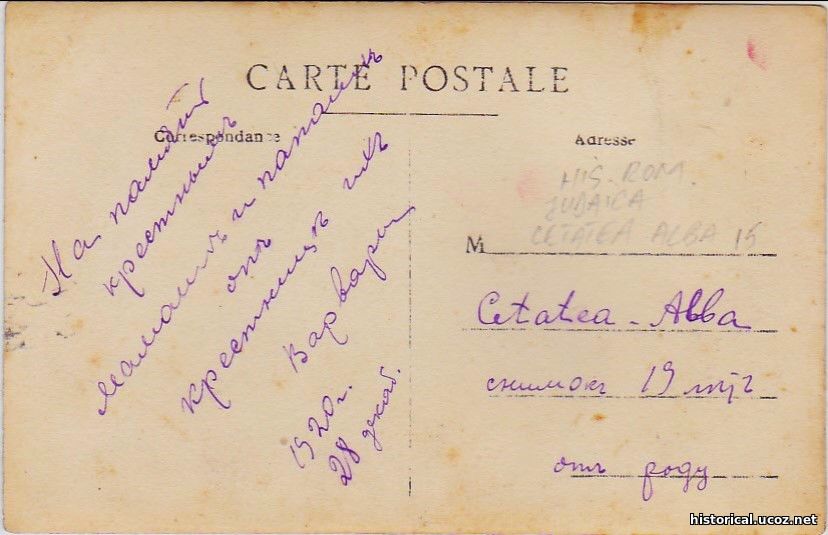 CARTE POSTALE
Correspondance
На память
крестнымъ
мамашѣ и папашѣ
отъ
крестницы ихъ
Варвары
1920 г.
28 декаб.
Adresse
HIS. ROM.
JUDAICA
CETATEA ALBA 15
M
Cetatea-Alba
снимокъ 19
отъ роду
historical.ucoz.net